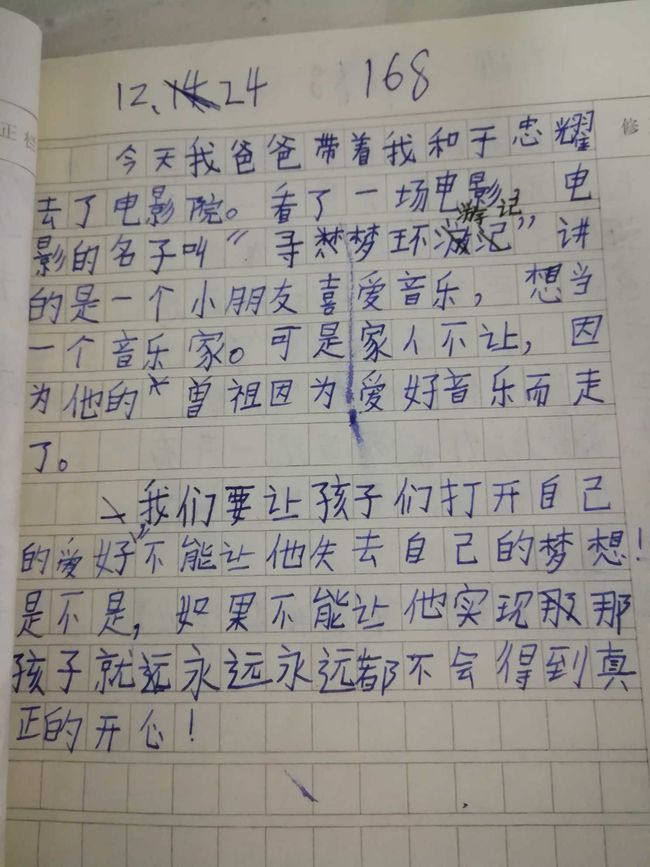 12、24 168
正栏
修
今天我爸爸带着我和于忠耀
去了电影院。看了一场电影,电
影的名子叫“寻梦环游记”讲
的是一个小朋友喜爱音乐,想当
一个音乐家。可是家人不让,因
为他的曾祖因为爱好音乐而走
了。
我们要让孩子们打开自己
的爱好,不能让他失去自己的梦想!
是不是,如果不能让他实现那那
孩子就远永远永远都不会得到真
正的开心!